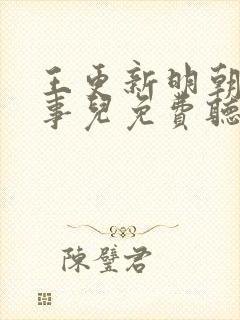 王更新明朝
事兒免費聽
陳璧君